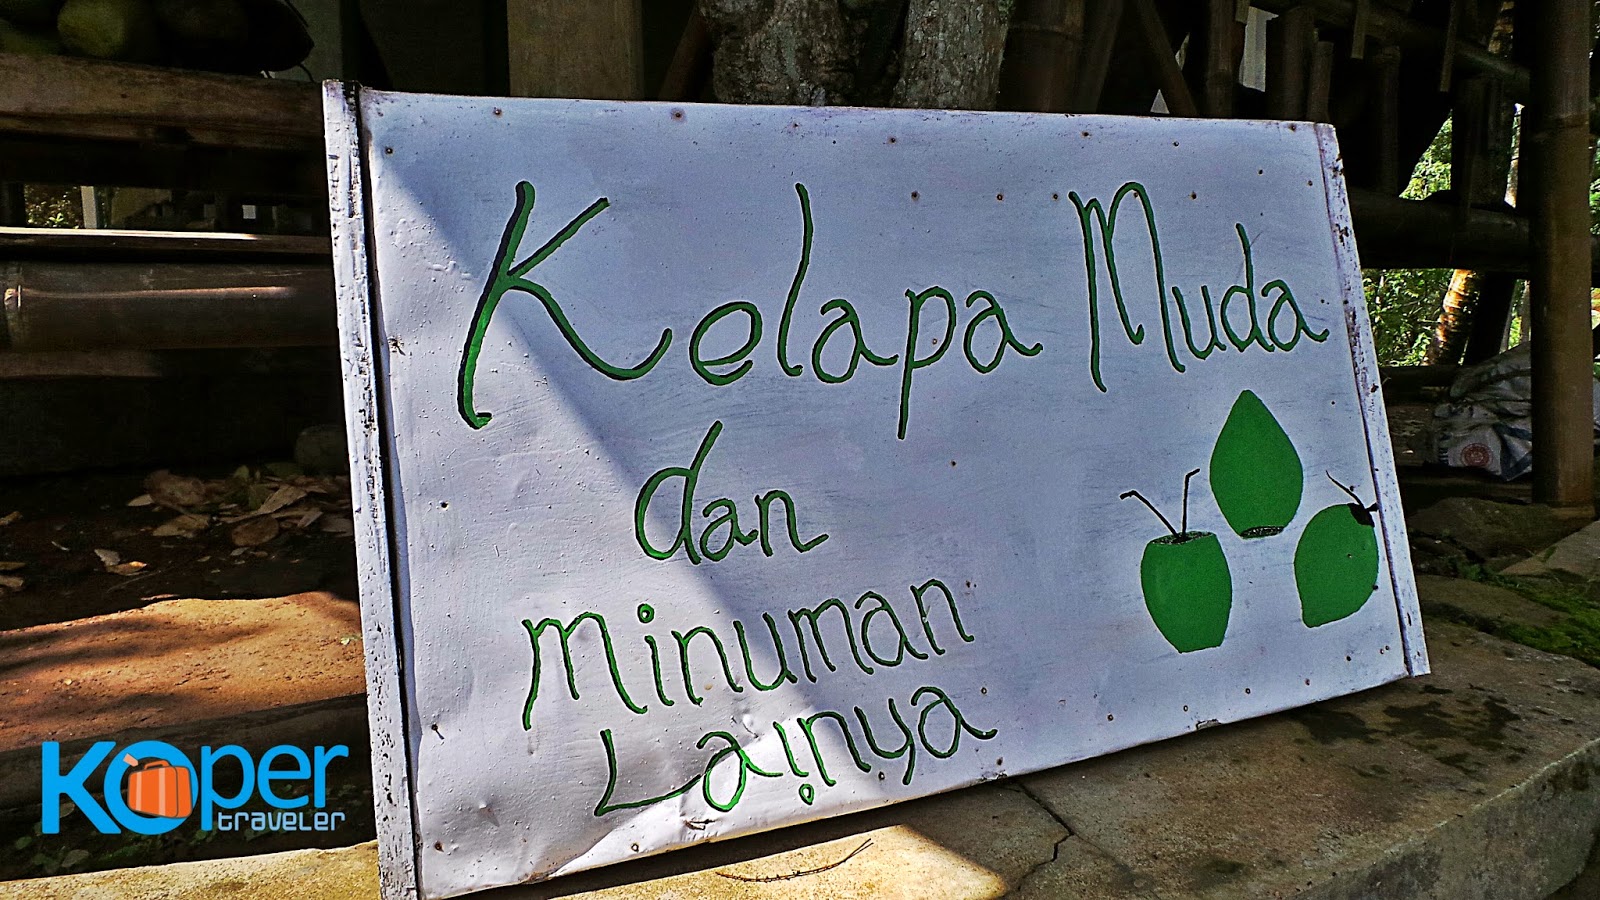 Kelapa Muda
dan
Minuman
Lainya
Koper
traveler